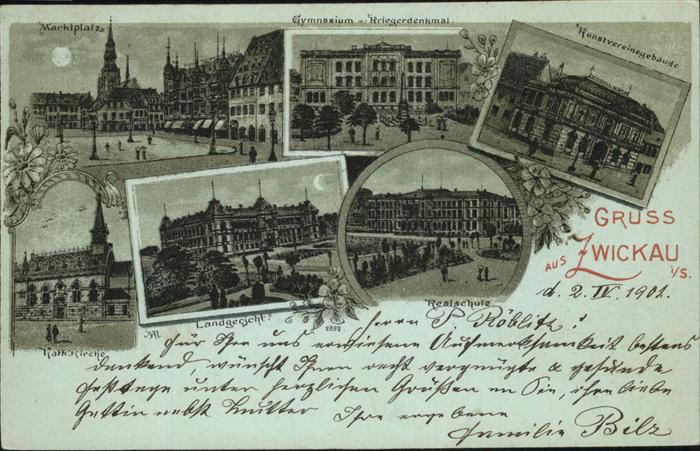 Marktplatz
Gymnasium m. Kriegerdenkmal.
Kunstvereinsgebäude
GRUSS
AUS ZWICKAU
i/S.
d. 2. IV. 1901.
Kath. Kirche
Landgericht.
2882
Realschule
Herrn P. Röblitz!
Für Ihre uns erwiesene Aufmerksamkeit bestens
dankend, wünscht Ihnen recht vergnügte & gesunde
Festtage unter herzlichen Grüßen an Sie, ihre liebe
Gattin nebst Mutter Ihre ergebene
Familie Bilz